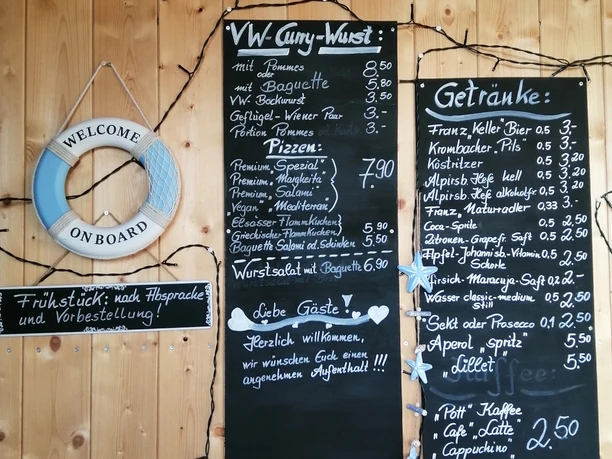 WELCOME
ON BOARD
Frühstück: nach Absprache
und Vorbestellung!
VW-Curry-Wurst:
mit Pommes 8.50
oder
mit Baguette 5.80
VW-Bockwurst 3.50
Geflügel-Wiener Paar 3.-
Portion Pommes 3.-
Pizzen:
Premium „Spezial"
Premium „Margherita"
Premium „Salami"
Vegan „Mediterran"
7.90
Elsässer Flammkuchen
Griechischer Flammkuchen 5.90
Baguette Salami od. Schinken 5.50
Wurstsalat mit Baguette 6.90
Liebe Gäste!
Herzlich willkommen,
wir wünschen Euch einen
angenehmen Aufenthalt!!!
Getränke:
Franz. Keller „Bier" 0,5 3.-
Krombacher „Pils" 0,5 3.-
Köstritzer 0,5 3.20
Alpirsb. Hefe hell 0,5 3.20
Alpirsb. Hefe alkoholfr. 0,5 3.20
Franz. „Naturradler" 0,33 3.-
Coca-Sprite 0,5 2.50
Zitronen-Grapefr. Saft 0,5 2.50
Apfel-Johannisb.-Vitamin 0,5 2.50
Schorle
Kirsich-Maracuja-Saft 0,2 2.-
Wasser classic-medium 0,5 2.50
still
Sekt oder Prosecco 0,1 2.50
Aperol „Spritz" 5.50
„Lillet" 5.50
Kaffee:
„Pott" Kaffee
„Cafe" Latte
„Cappuchino"
2.50